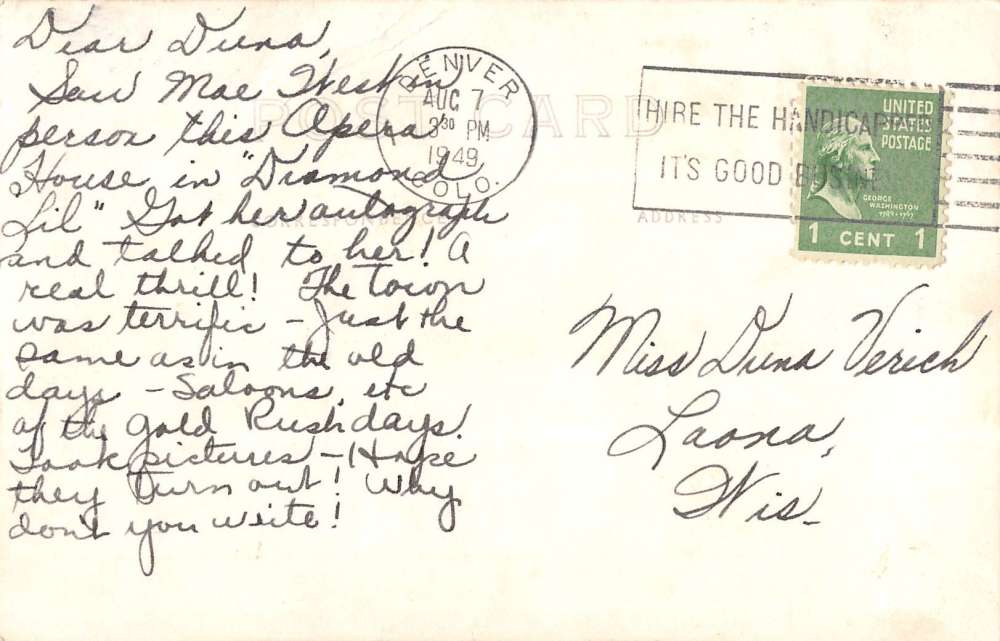 Dear Duna,
Saw Mae West in
person this Opera
House in "Diamond
Lil" Got her autograph
and talked to her! A
real thrill! The town
was terrific - Just the
same as in the old
days - Saloons, etc
of the Gold Rush days.
Took pictures - Hope
they turn out! Why
don't you write!
POST CARD
CORRESPONDENCE
ADDRESS
DENVER
AUG 7
3 30 PM
1949
COLO.
HIRE THE HANDICAPPED
IT'S GOOD BUSINESS
UNITED
STATES
POSTAGE
GEORGE
WASHINGTON
1789-1797
1 CENT 1
Miss Duna Verich
Laona,
Wis-